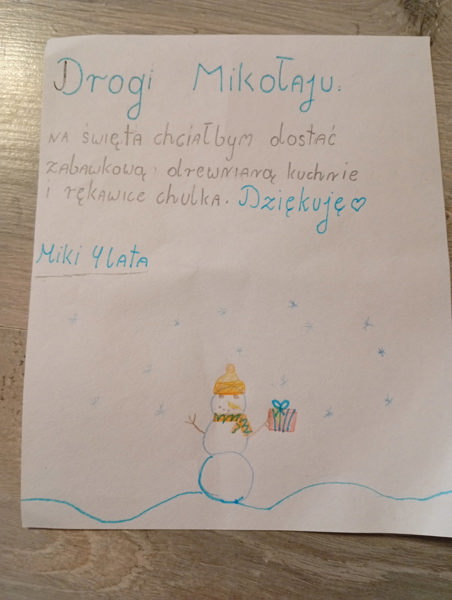 Drogi Mikołaju:
na święta chciałbym dostać
zabawkową, drewnianą kuchnie
i rękawice chulka. Dziękuję ♡
Miki 4 lata